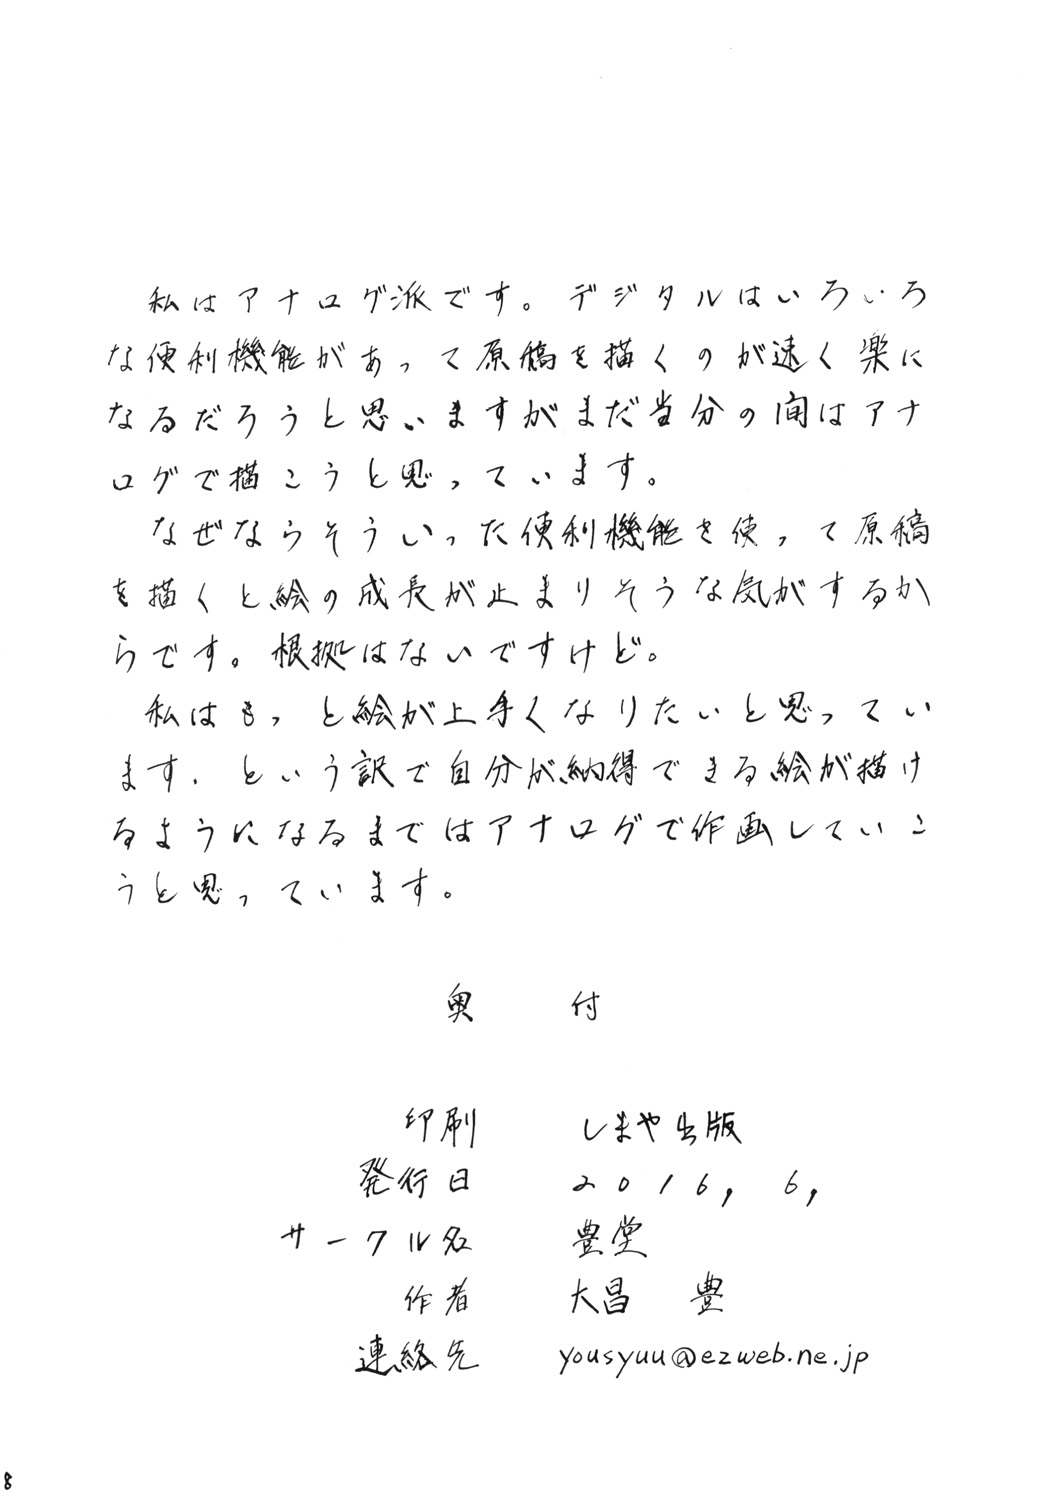 私はアナログ派です。デジタルはいろいろ
な便利機能があって原稿を描くのが速く楽に
なるだろうと思いますがまだ当分の間はアナ
ログで描こうと思っています。
なぜならそういった便利機能を使って原稿
を描くと絵の成長が止まりそうな気がするか
らです。根拠はないですけど。
私はもっと絵が上手くなりたいと思ってい
ます。という訳で自分が納得できる絵が描け
るようになるまではアナログで作画していこ
うと思っています。
奥付
印刷 しまや出版
発行日 2016, 6,
サークル名 豊堂
作者 大昌 豊
連絡先 yousyuu@ezweb.ne.jp
8